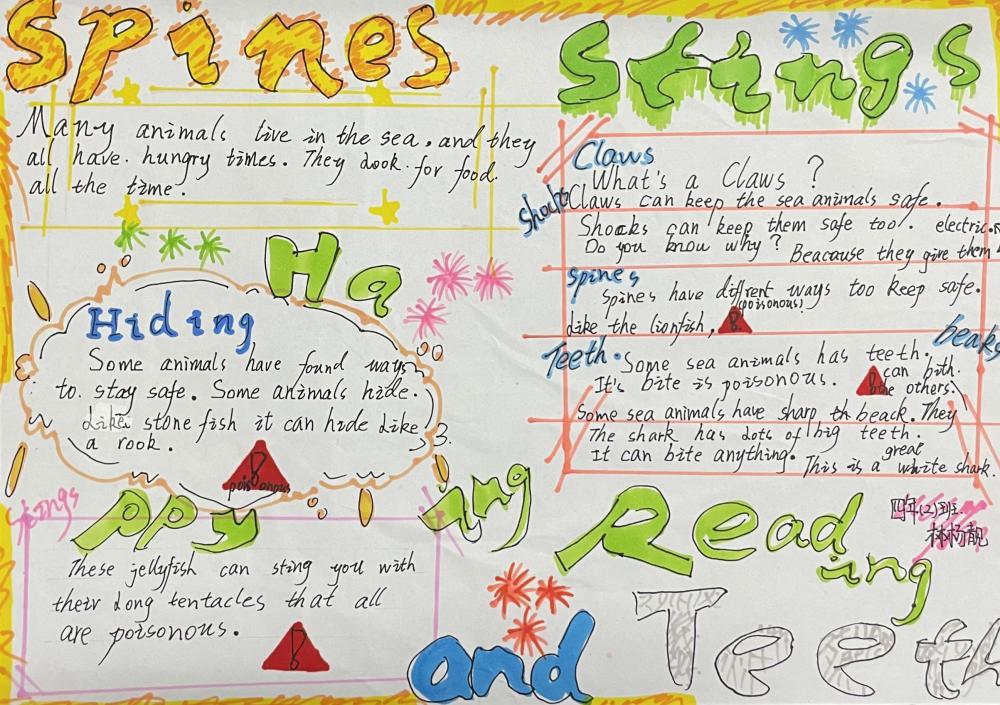 Spines
Many animals live in the sea, and they
all have hungry times. They look for food
all the time.
Stings
Claws
What's a Claws ?
Claws can keep the sea animals safe.
Shocks
Shocks can keep them safe too. electric.
Do you know why? Beacause they give them
spines
Spines have diffrent ways too keep safe.
(poisonous)
Like the lionfish,
Teeth.
beaks
Some sea animals has teeth.
It's bite is poisonous.
can bith
others.
Some sea animals have sharp beack. They
The shark has lots of big teeth.
It can bite anything.
great
This is a white shark.
Ha
Hiding
Some animals have found ways
to stay safe. Some animals hide.
Like stone fish it can hide like
a rook.
poisonous
ppy
ing
stings
These jellyfish can sting you with
their long tentacles that all
are poisonous.
Reading
四年(2)班
林杨靓
and
Teeth